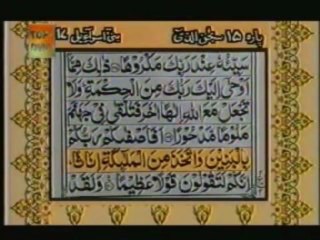 پارہ ۱۵ سبحٰن الذی
بنی اسرآءیل ۱۷
سَيِّئُهٗ عِنْدَ رَبِّكَ مَكْرُوْهًا ذٰلِكَ مِمَّاۤ
اَوْحٰۤى اِلَيْكَ رَبُّكَ مِنَ الْحِكْمَةِ وَلَا
تَجْعَلْ مَعَ اللّٰهِ اِلٰهًا اٰخَرَ فَتُلْقٰى فِيْ جَهَنَّمَ
مَلُوْمًا مَّدْحُوْرًا اَفَاَصْفٰىكُمْ رَبُّكُمْ
بِالْبَنِيْنَ وَاتَّخَذَ مِنَ الْمَلٰٓئِكَةِ اِنَاثًا
اِنَّكُمْ لَتَقُوْلُوْنَ قَوْلًا عَظِيْمًا وَلَقَدْ